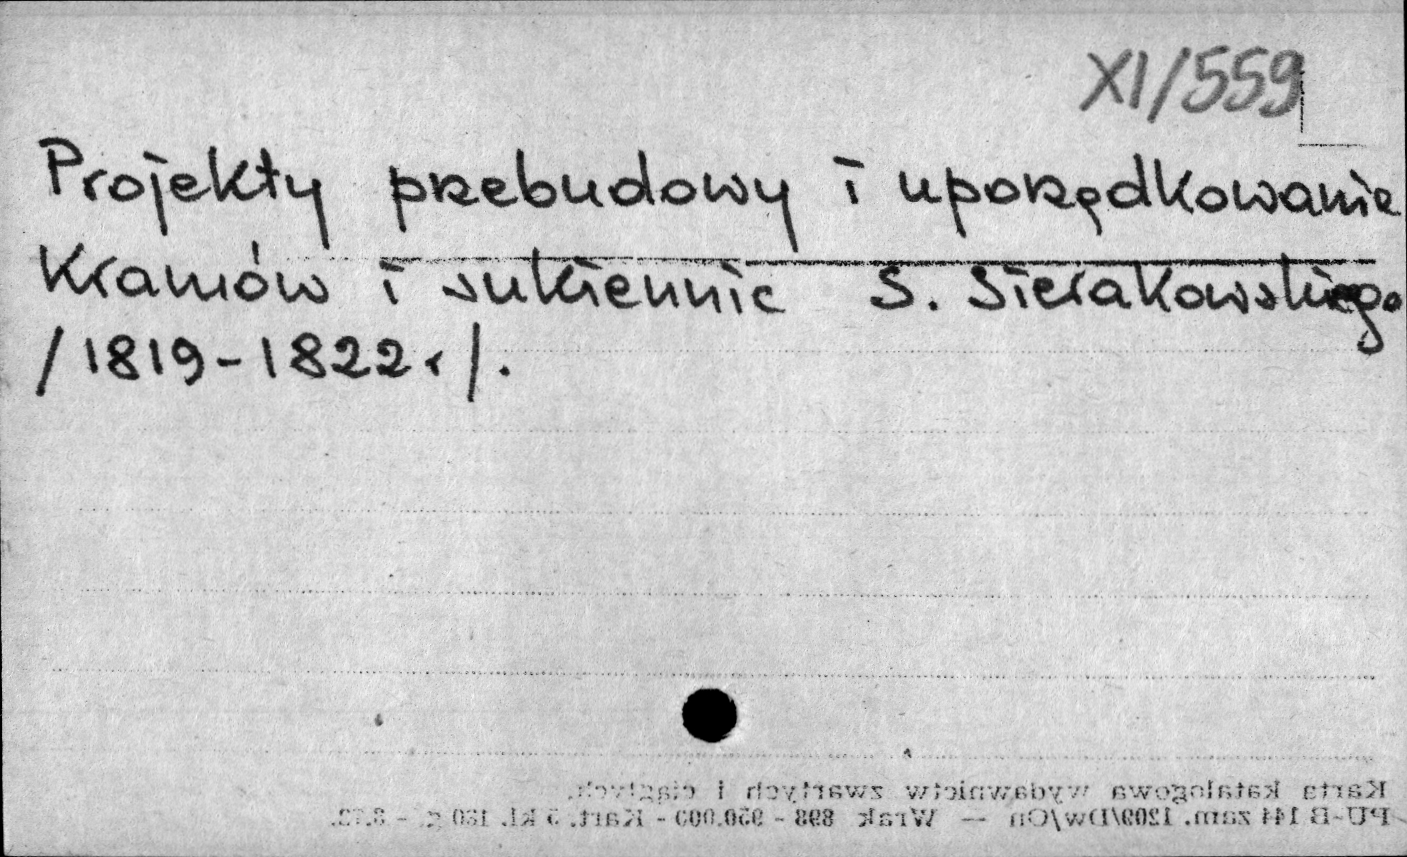 XI/559
Projekty przebudowy i uporządkowanie
Kramów i sukiennic S. Sierakowskiego
/1819-1822r/.
Karta katalogowa wydawnictw zwartych i ciągłych.
PU-B 144 zam. 1209/Dw/On — Wrak 898 - 950.000 - Kart. 5 kl. 180 g. - 8.72.